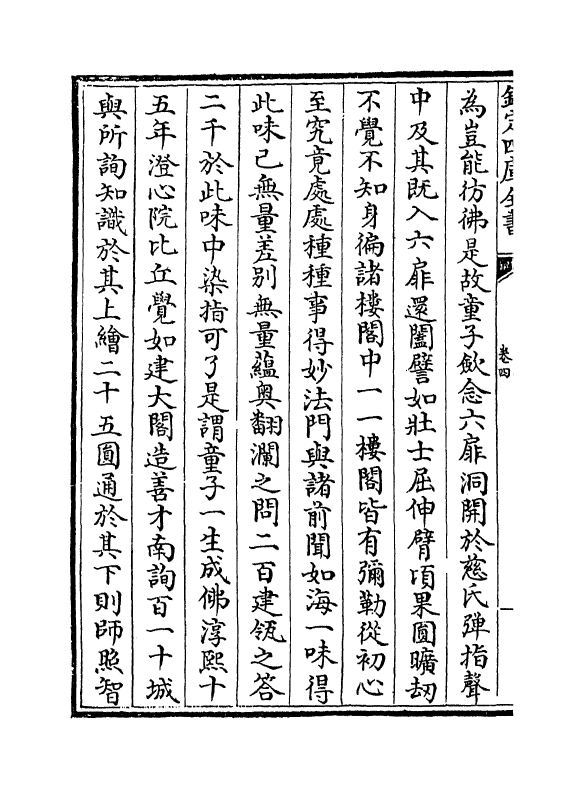 欽定四庫全書
卷四
為豈能彷彿是故童子斂念六扉洞開於慈氏彈指聲
中及其既入六扉還闔譬如壯士屈伸臂項果圓曠劫
不覺不知身徧諸樓閣中一一樓閣皆有彌勒從初心
至究竟處處種種事得妙法門與諸前聞如海一味得
此味已無量差别無量蘊奥翻瀾之問二百建瓴之答
二千於此味中染指可了是謂童子一生成佛淳熙十
五年澄心院比丘覺如建大閣造善才南詢百一十城
與所詢知識於其上繪二十五圓通於其下則師照智